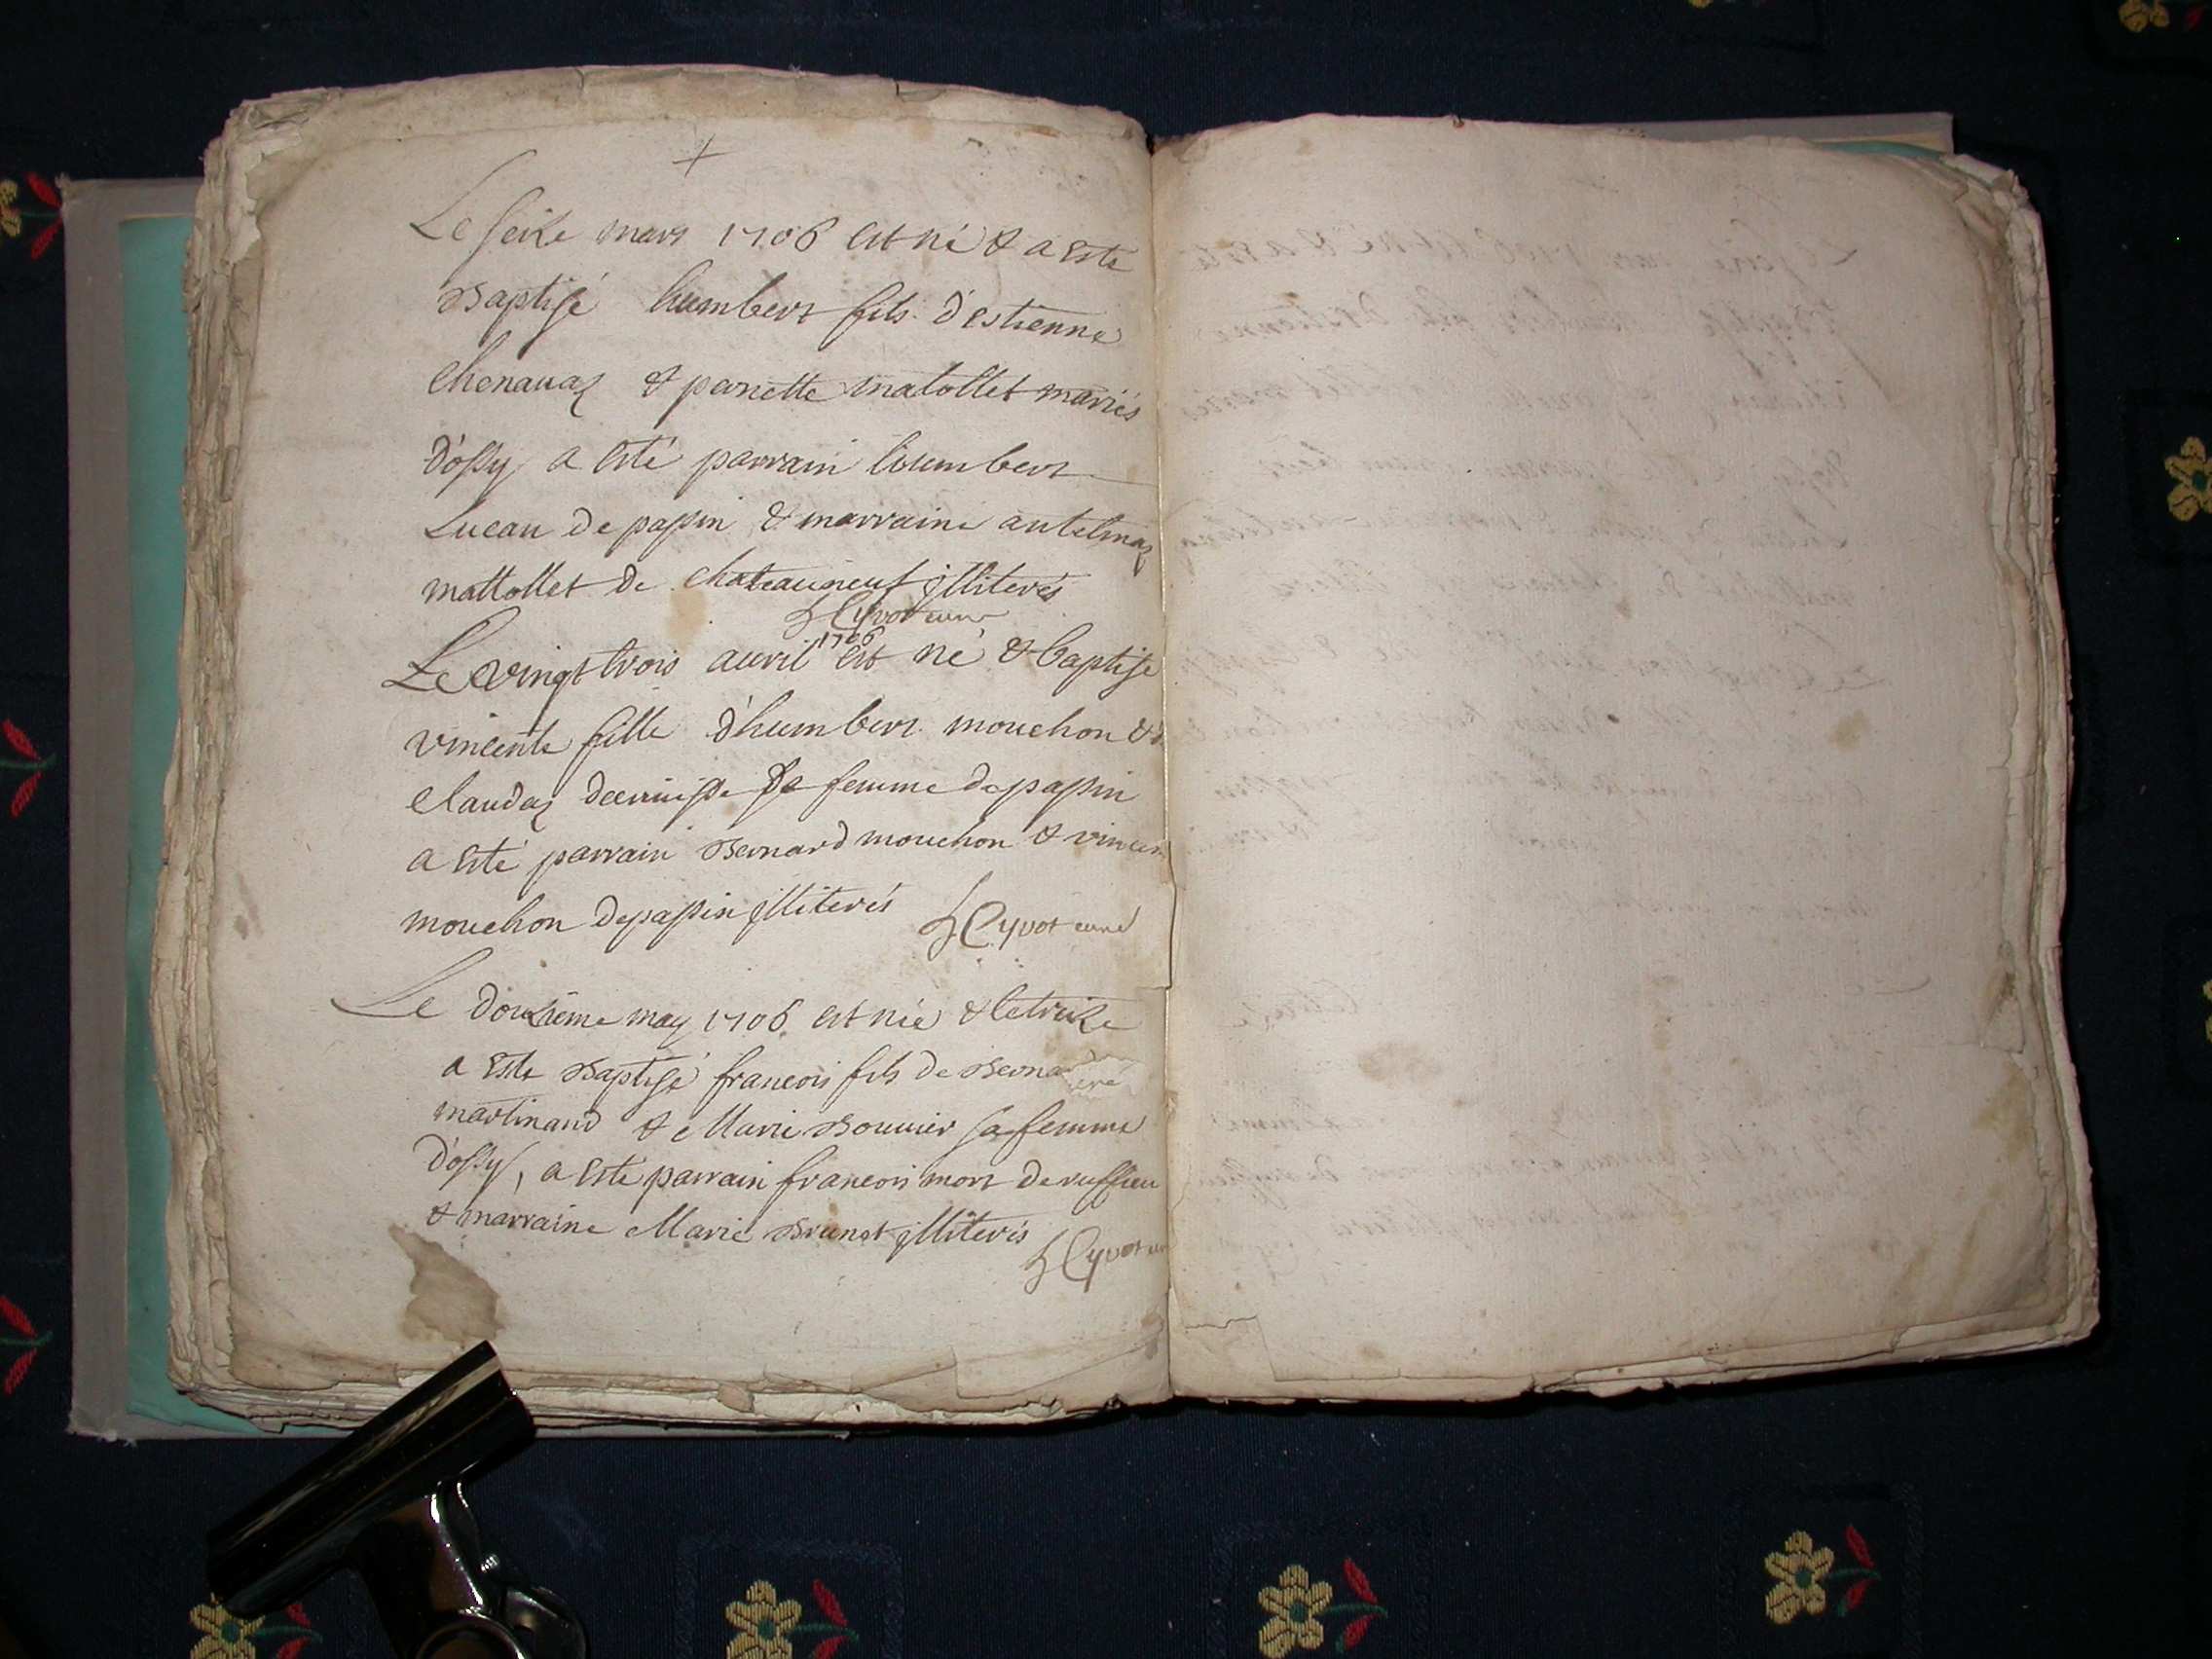 Le seize mars 1706 est né & a esté
Baptisé humbert fils d'estienne
Chenauaz & pernette matollet mariés
d'ossy a esté parrain humbert
Lucau de passin & marraine antelmaz
mattollet de chateauneuf jlliterés
Cyvot curé
1706
Le vingt trois auvril est né & baptisé
vincente fille d'humbert mouchon &
claudaz femme de passin
a esté parrain Bernard mouchon & vincen
mouchon de passin jlliterés Cyvot curé
Le douzieme may 1706 est née & le treize
a esté Baptisé francois fils de Berna
martinand & Marie Bouuier sa femme
d'ossy, a esté parrain francois mort de ruffieu
& marraine Marie Brunet jlliterés
Cyvot